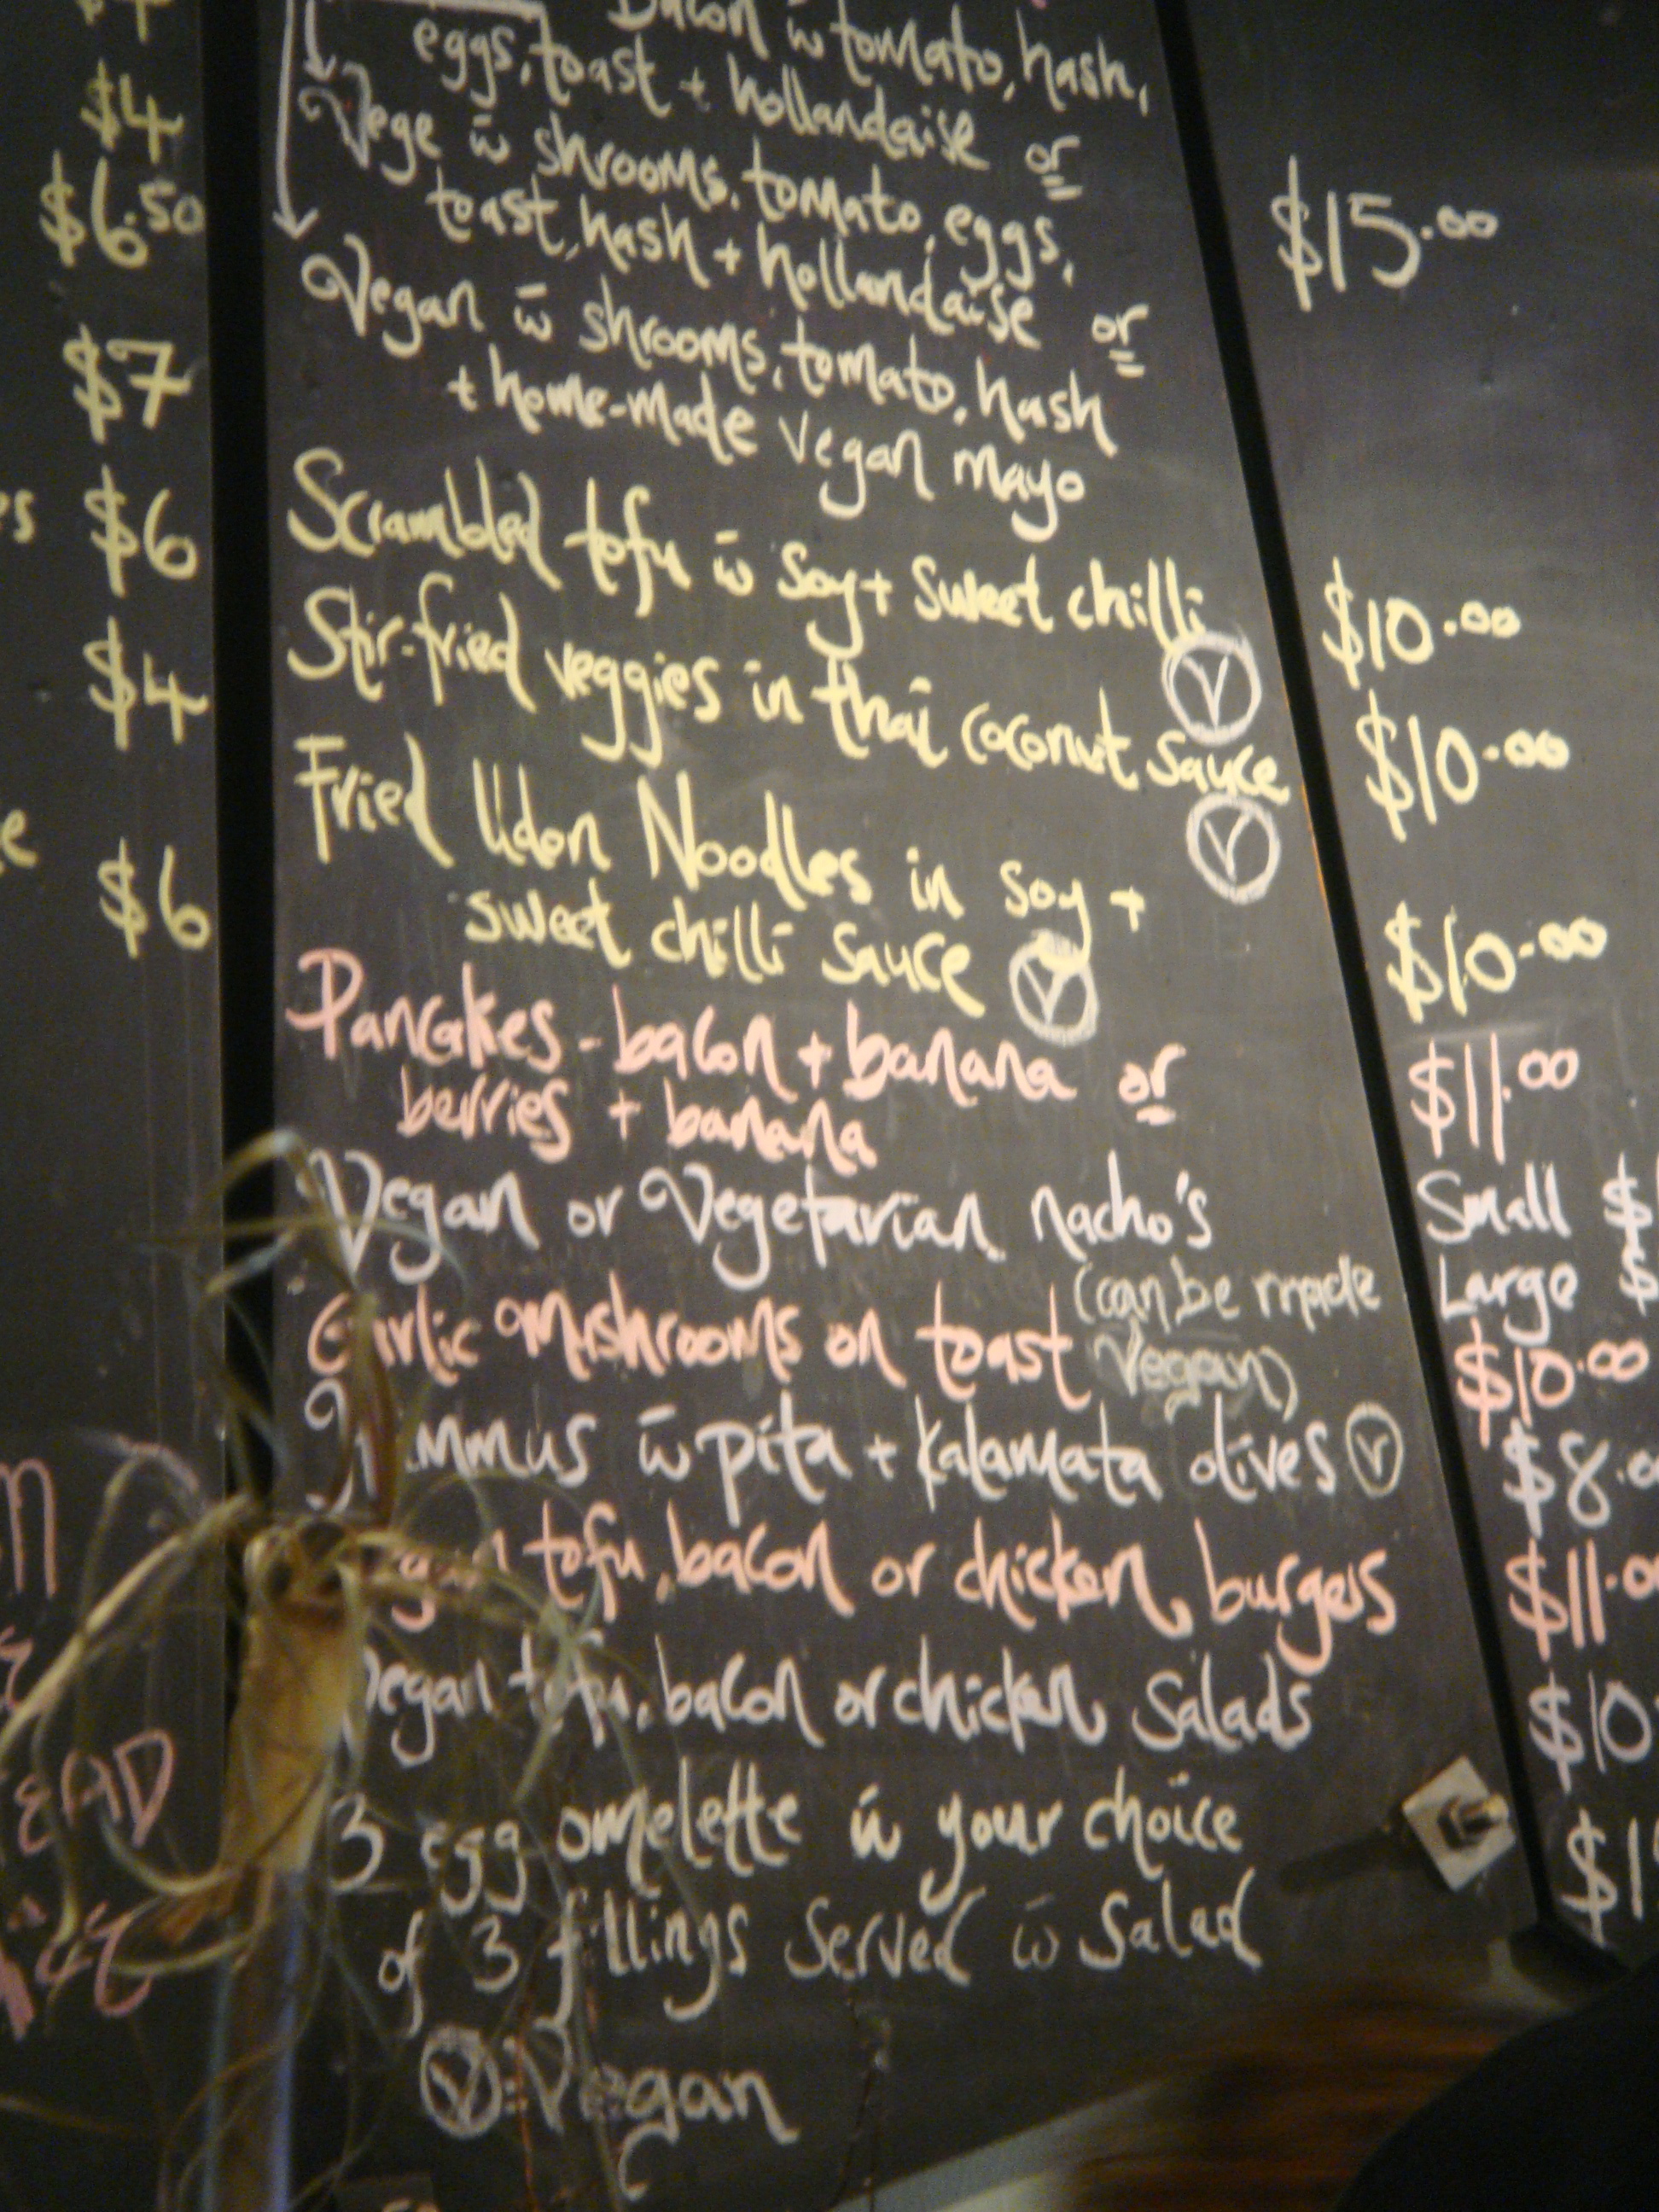 $4
$6.50
$7
$6
$4
$6
Bacon w̄ tomato, hash,
eggs, toast + hollandaise or
Vege w̄ shrooms, tomato, eggs,
toast, hash + hollandaise or
Vegan w̄ shrooms, tomato, hash
+ home-made vegan mayo
$15.00
Scrambled tofu w̄ soy + sweet chilli Ⓥ $10.00
Stir-fried veggies in thai coconut sauce Ⓥ $10.00
Fried Udon Noodles in soy +
sweet chilli sauce Ⓥ $10.00
Pancakes - bacon + banana or $11.00
berries + banana
Vegan or Vegetarian nacho's Small $
Large $
Garlic mushrooms on toast (can be made $10.00
vegan)
Hummus w̄ pita + kalamata olives Ⓥ $8.0
Vegan tofu, bacon or chicken burgers $11.0
Vegan tofu, bacon or chicken salads $10
3 egg omelette w̄ your choice $1
of 3 fillings served w̄ salad
Ⓥ = Vegan